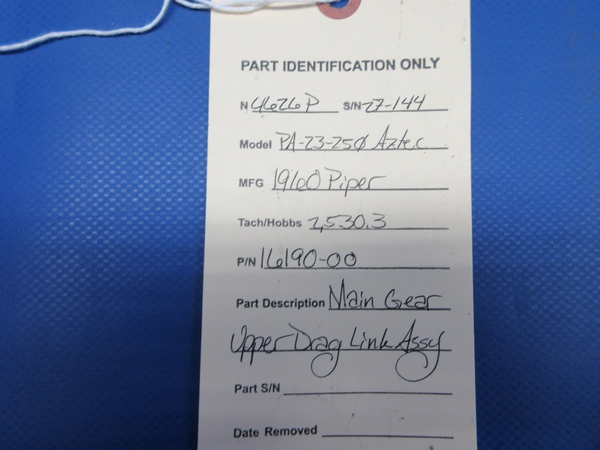 PART IDENTIFICATION ONLY
N 4626P S/N 27-144
Model PA-23-250 Aztec
MFG 1960 Piper
Tach/Hobbs 2,530.3
P/N 16190-00
Part Description Main Gear
Upper Drag Link Assy
Part S/N
Date Removed